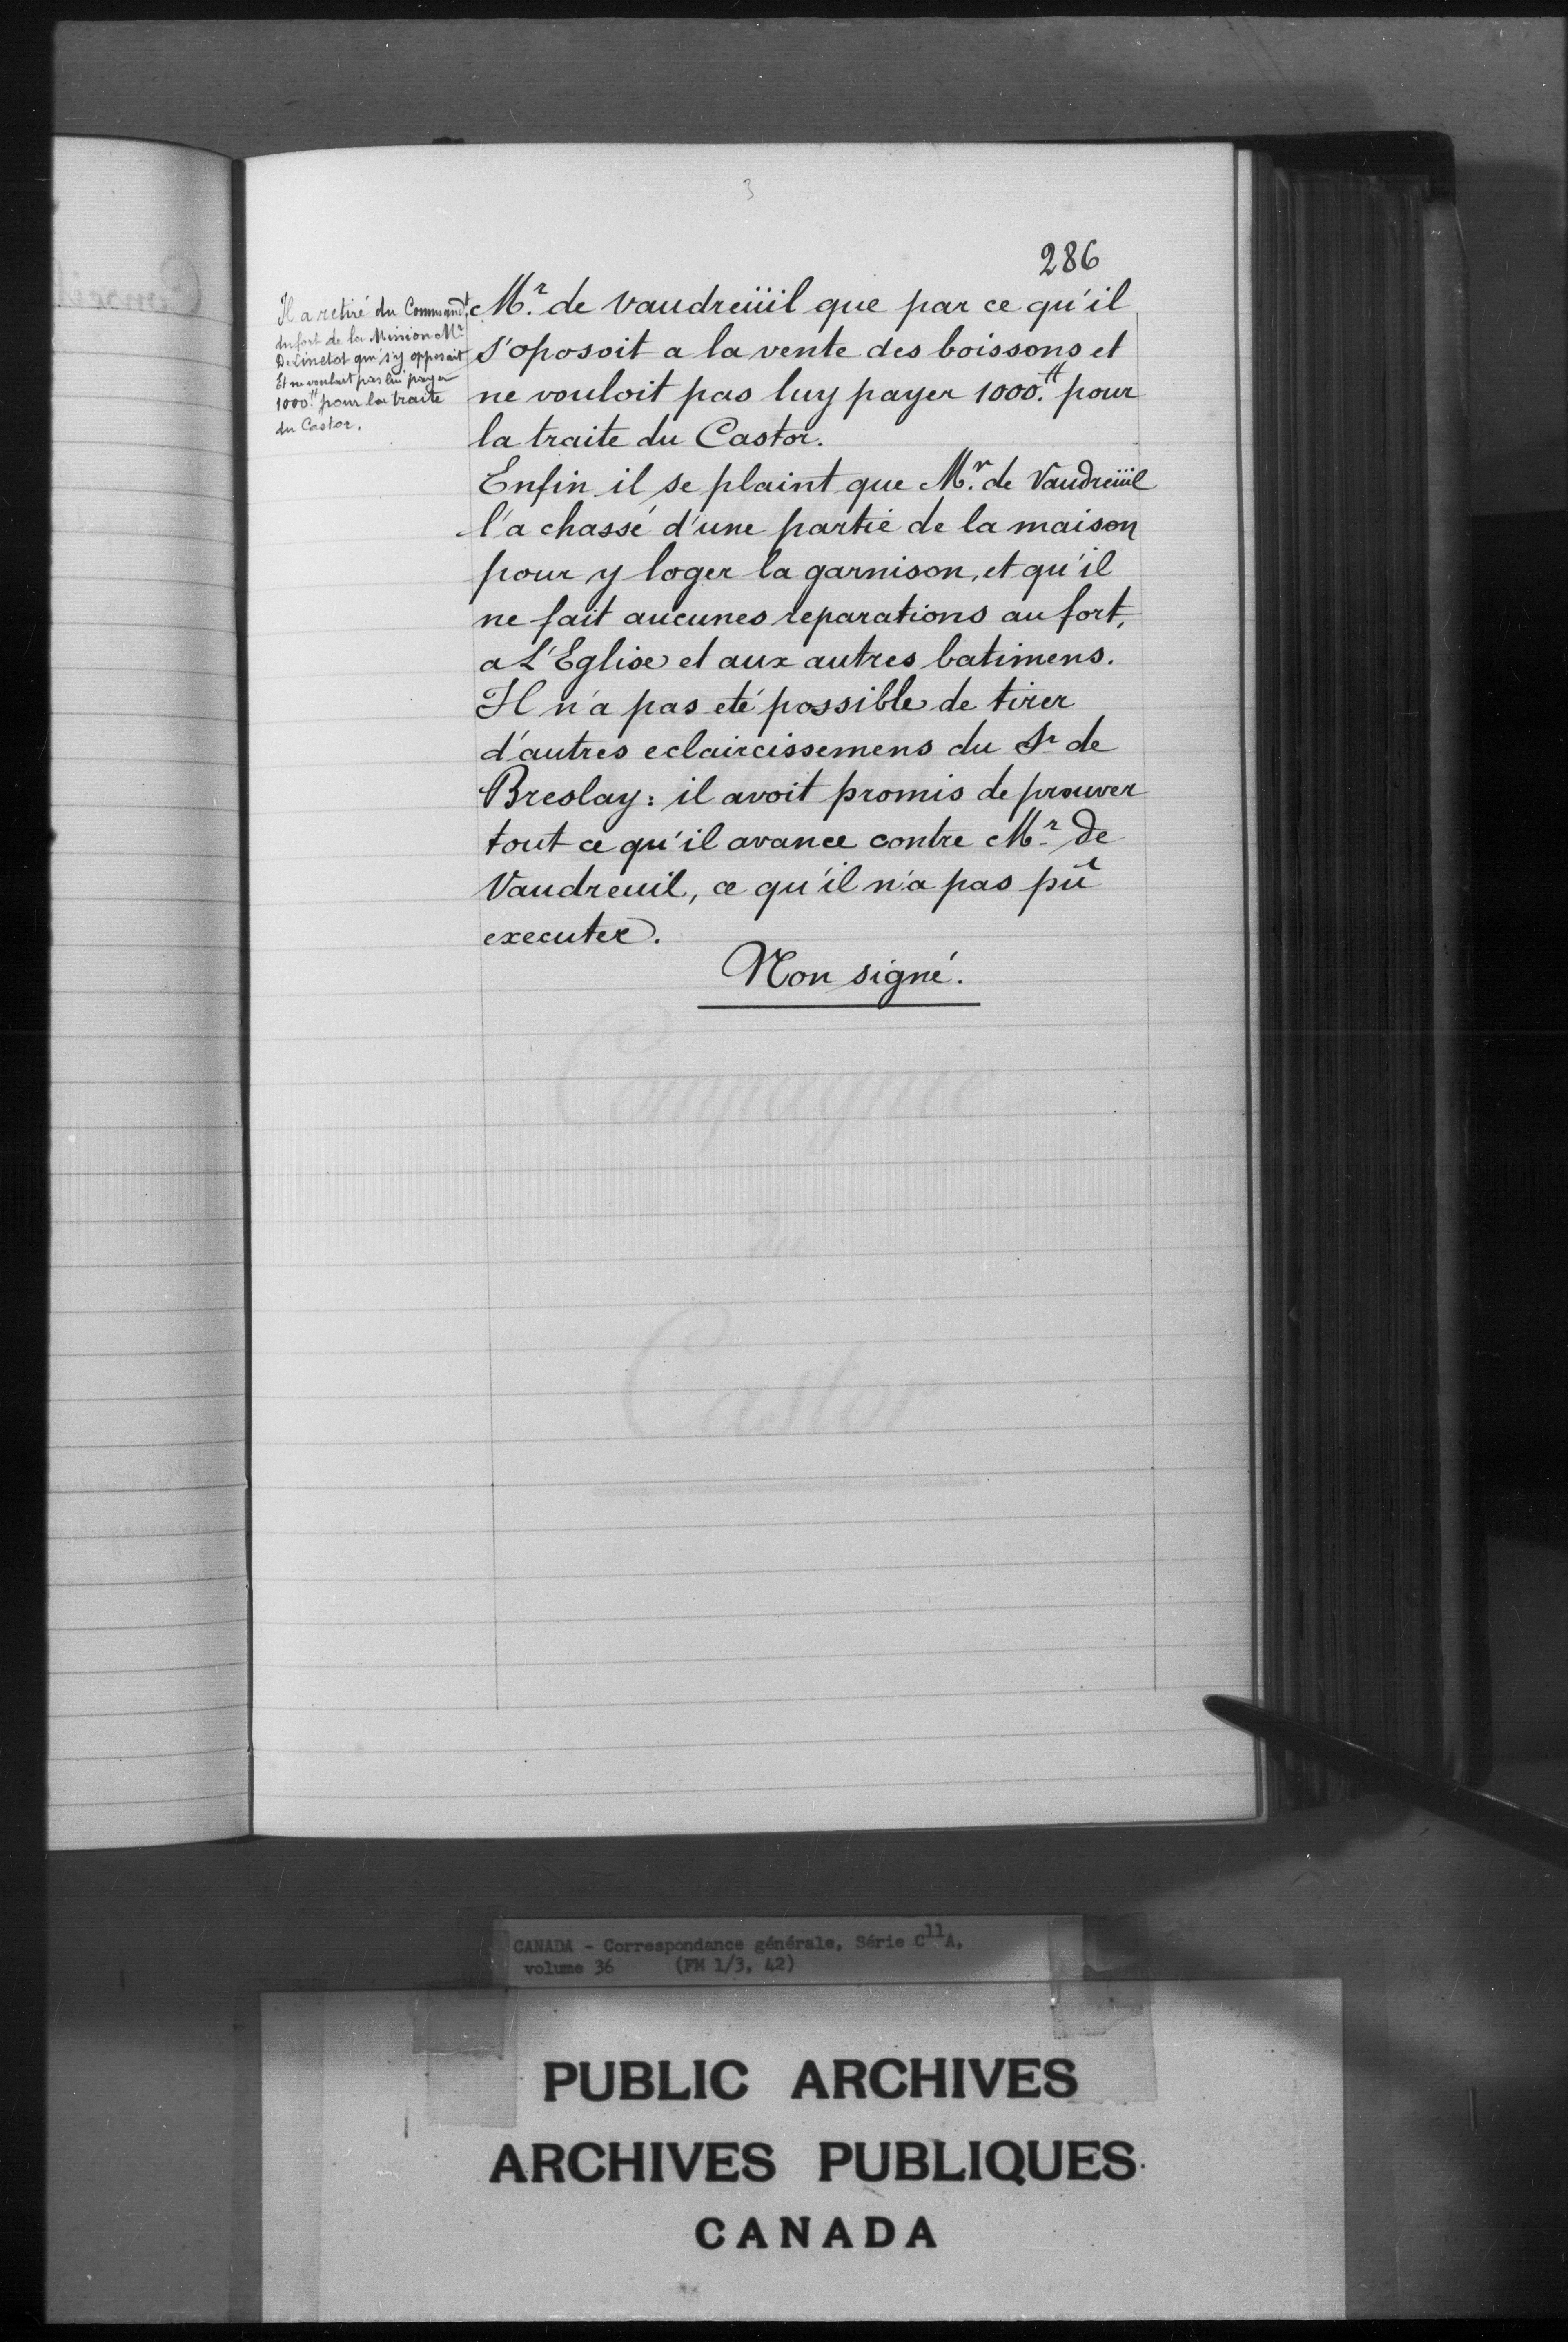 3
286
Il a retiré du Commandt
du fort de la Mission Mr
De Linetot qui s'y opposait
Et ne voulait pas lui payer
1000.tt pour la traite
du Castor.
Mr. de Vaudreüil que par ce qu'il
s'oposoit a la vente des boissons et
ne vouloit pas luy payer 1000.tt pour
la traite du Castor.
Enfin il se plaint que Mr. de Vaudreüil
l'a chassé d'une partie de la maison
pour y loger la garnison, et qu'il
ne fait aucunes reparations au fort,
a L'Eglise et aux autres batimens.
Il n'a pas eté possible de tirer
d'autres eclaircissemens du Sr de
Breslay : il avoit promis de prouver
tout ce qu'il avance contre Mr. de
Vaudreuil, ce qu'il n'a pas pû
executer.
Non signé.
Compagnie
du
Castor
CANADA - Correspondance générale, Série C11A,
volume 36 (FM 1/3, 42)
PUBLIC ARCHIVES
ARCHIVES PUBLIQUES
CANADA